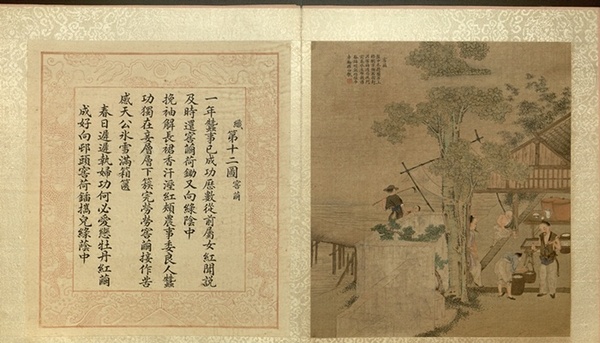 織第十二圖 窖繭
一年蠶事已成功歷數從前屬女紅聞說
及時還窖繭荷鋤又向綠陰中
挽袖解長裙香汗溼紅頰農事委良人蠶
功獨在妾層層下簇完勞勞窖繭接作苦
感天公氷雪滿箱篋
春日遲遲執婦功何必愛戀牡丹紅繭
成好向邨頭窖荷鍤攜兒綠蔭中